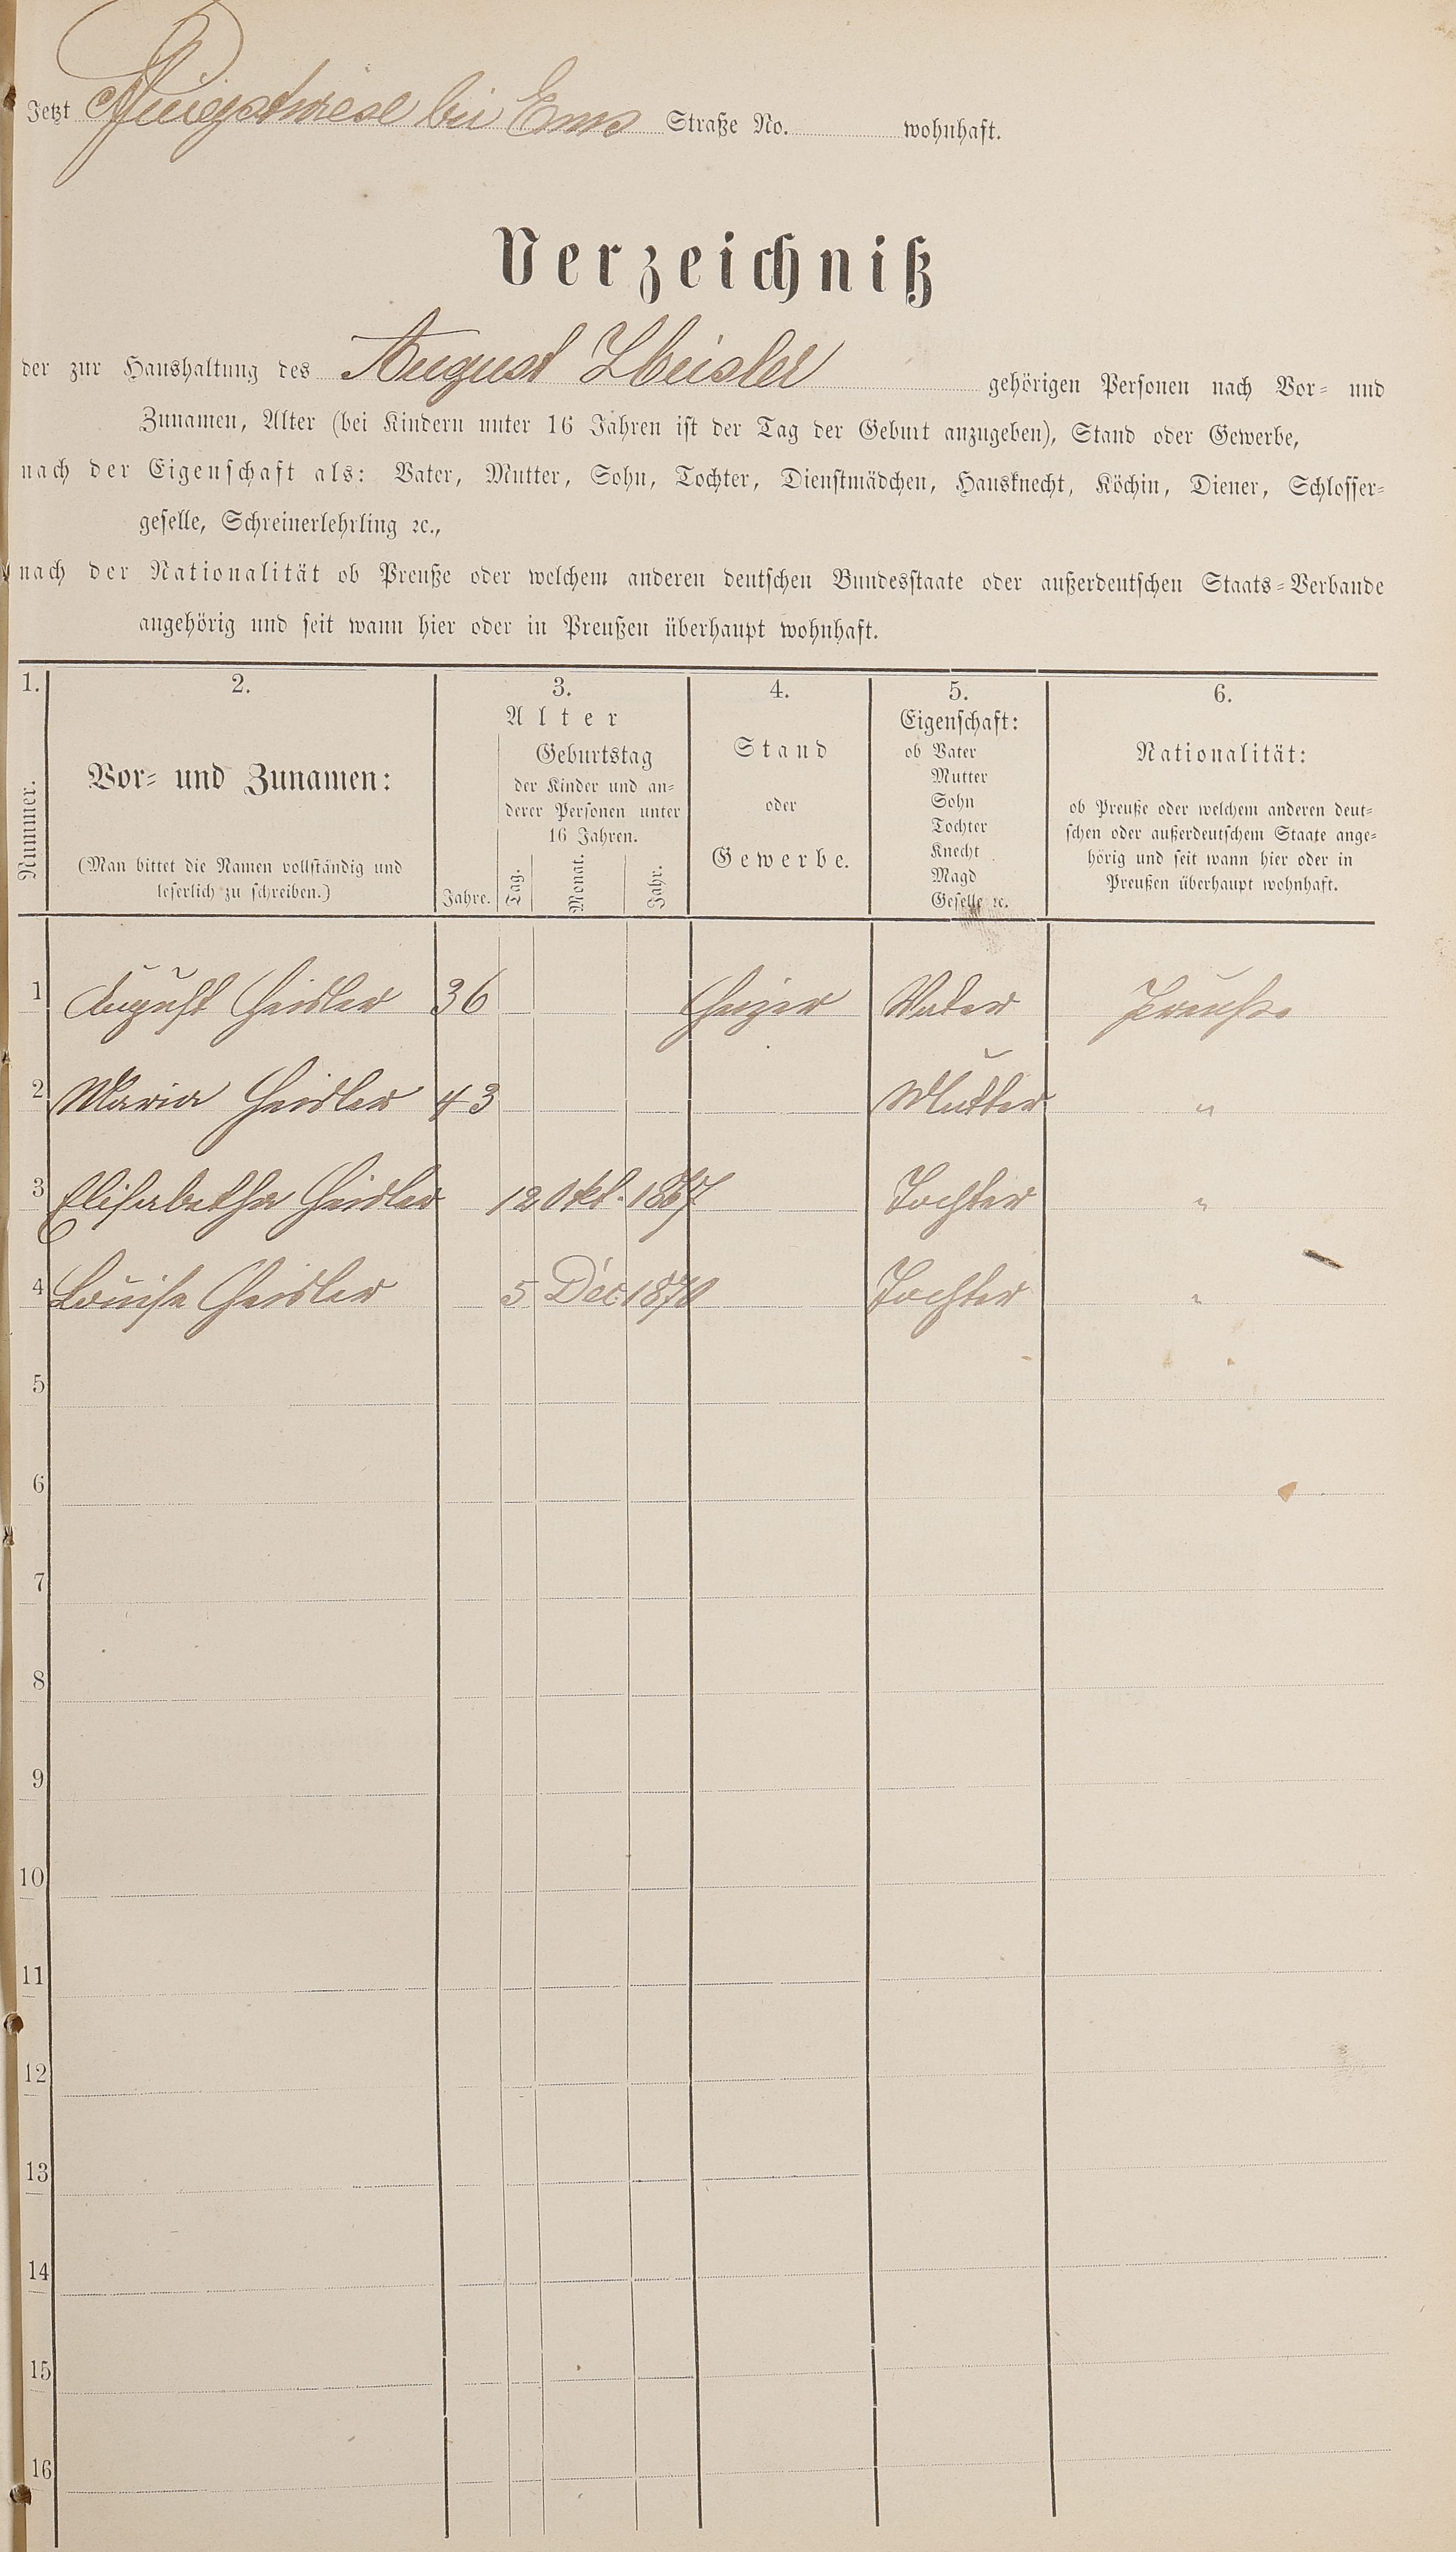 Jetzt Pfingstwiese bei Ems Straße No. wohnhaft.
Verzeichniß
der zur Haushaltung des August Heisler gehörigen Personen nach Vor- und
Zunamen, Alter (bei Kindern unter 16 Jahren ist der Tag der Geburt anzugeben), Stand oder Gewerbe,
nach der Eigenschaft als: Vater, Mutter, Sohn, Tochter, Dienstmädchen, Hausknecht, Köchin, Diener, Schlosser-
geselle, Schreinerlehrling ꝛc.,
nach der Nationalität ob Preuße oder welchem anderen deutschen Bundesstaate oder außerdeutschen Staats-Verbande
angehörig und seit wann hier oder in Preußen überhaupt wohnhaft.
1.
Nummer.
2.
Vor- und Zunamen:
(Man bittet die Namen vollständig und
leserlich zu schreiben.)
3.
Alter
Jahre.
Geburtstag
der Kinder und an-
derer Personen unter
16 Jahren.
Tag. Monat. Jahr.
4.
Stand
oder
Gewerbe.
5.
Eigenschaft:
ob Vater
Mutter
Sohn
Tochter
Knecht
Magd
Geselle ꝛc.
6.
Nationalität:
ob Preuße oder welchem anderen deut-
schen oder außerdeutschem Staate ange-
hörig und seit wann hier oder in
Preußen überhaupt wohnhaft.
1 August Heisler 36 Heizer Vater Preuße
2 Maria Heisler 43 Mutter "
3 Elisabetha Heisler 12 Okt. 1867 Tochter "
4 Louise Heisler 5 Dec. 1870 Tochter "
5
6
7
8
9
10
11
12
13
14
15
16